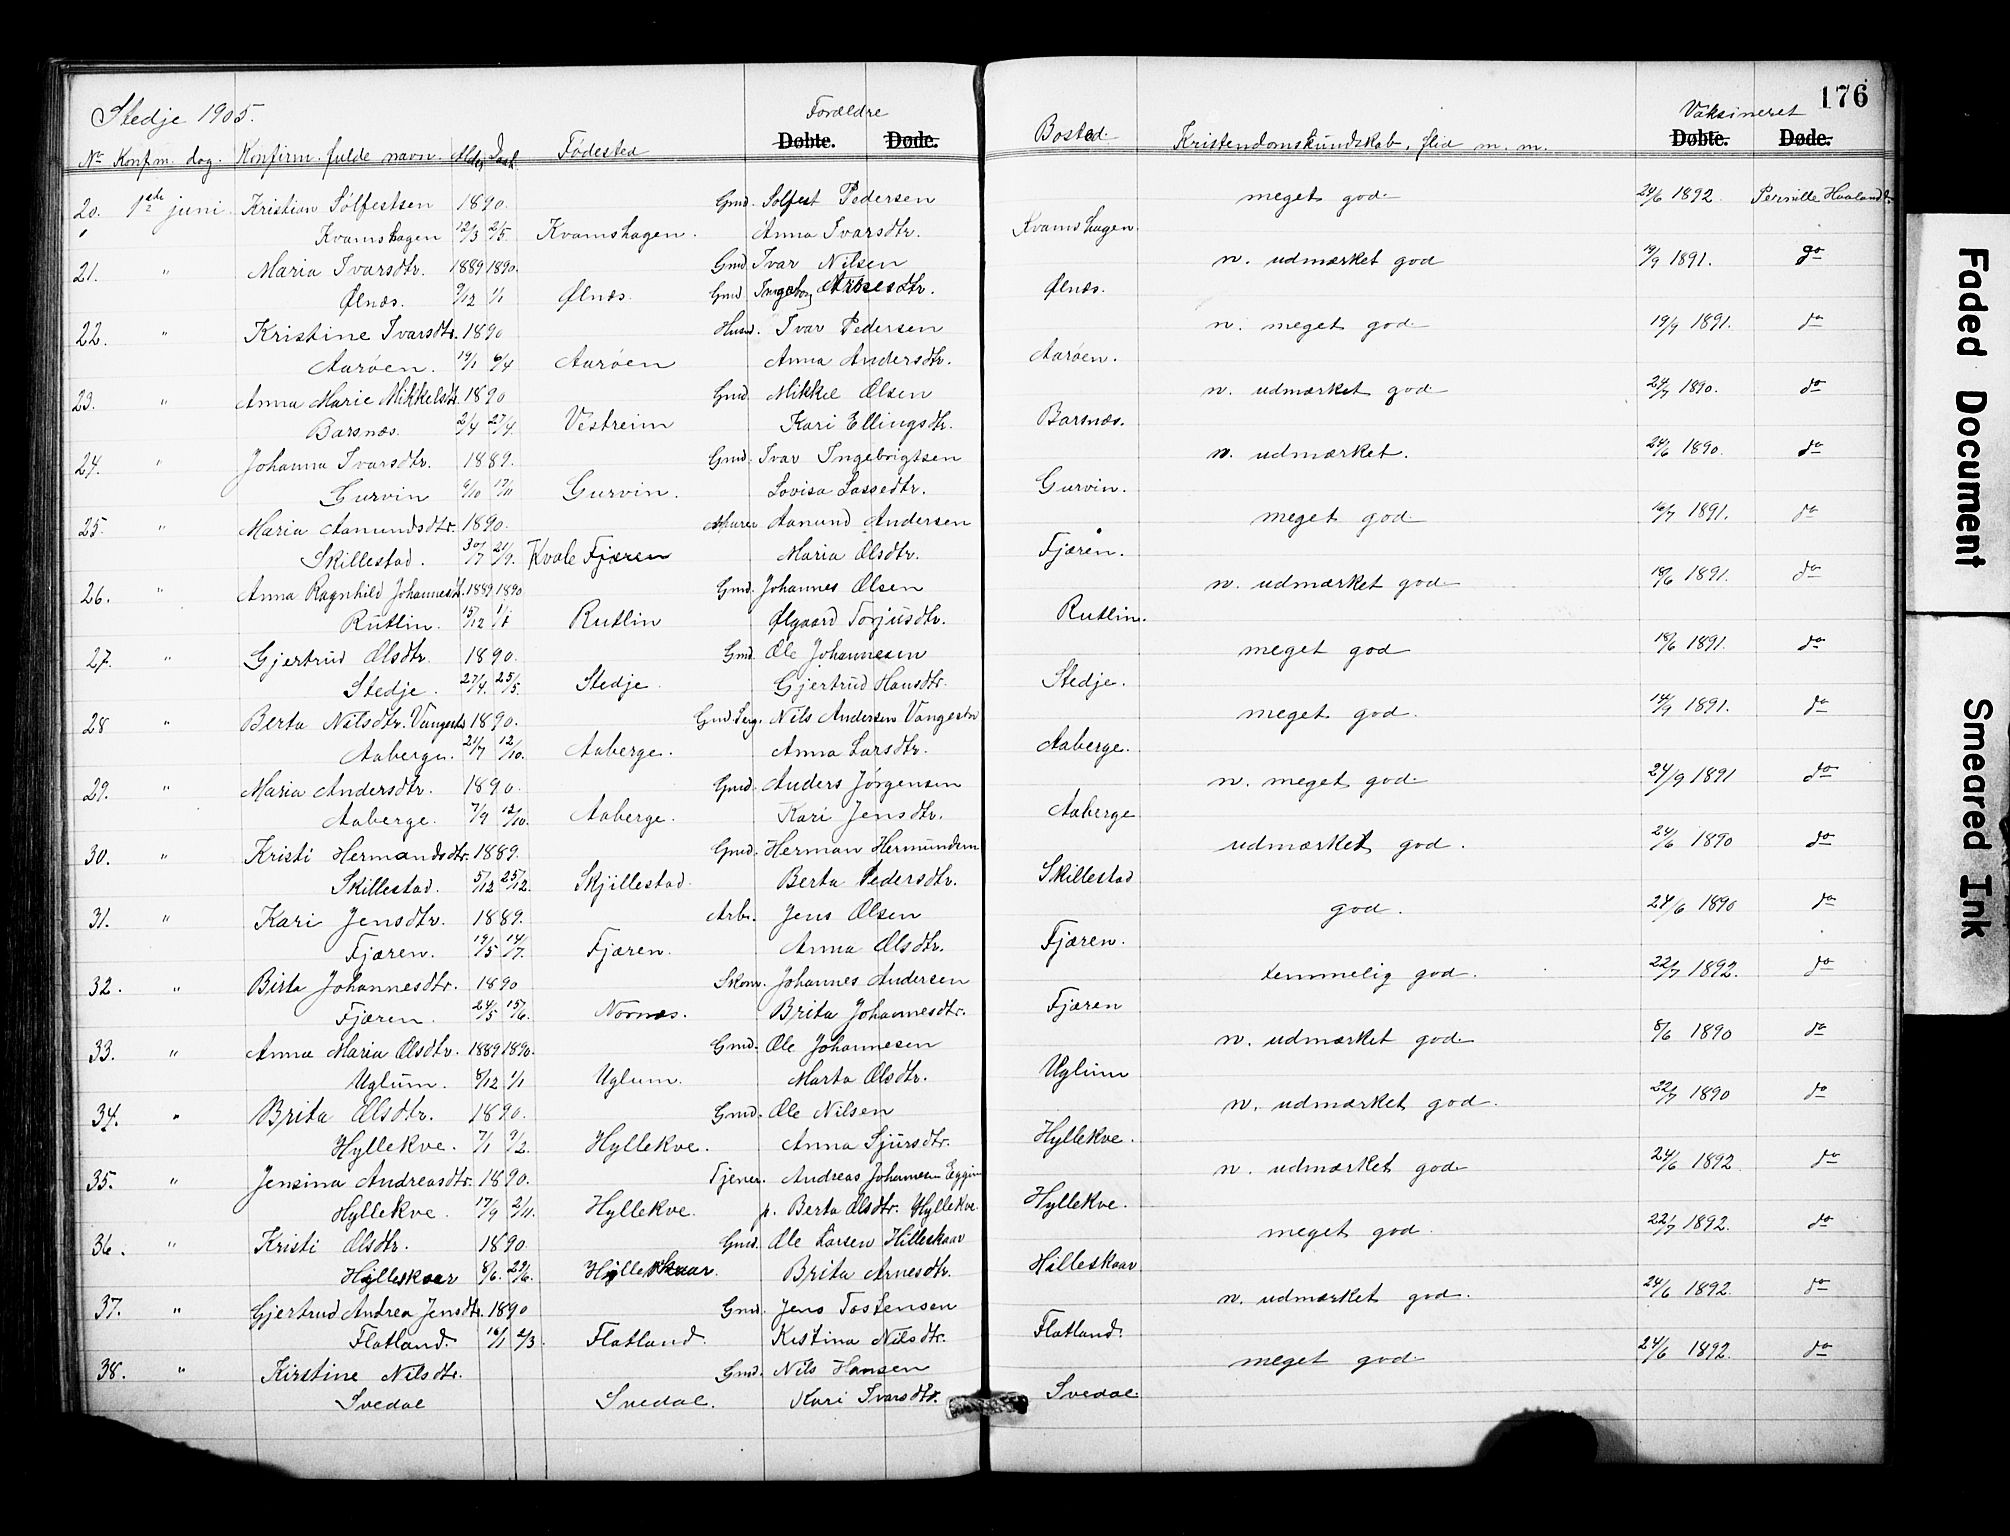 176
Stedje 1905.
Forældre
Døbte. Døde.
Vaksineret
Døbte. Døde.
No Konfirm. dag. Konfirm. fulde navn. Alder Daab Fødested
Bosted. Kristendomskundskab, flid m. m.
20. 1ste juni Kristian Sølfestsen 1890. Gmd. Solfest Pedersen meget god 24/6 1892. Pernille Haaland
Kvamshagen 12/3 2/5. Kvamshagen. Anna Ivarsdtr. Kvamshagen.
21. " Maria Ivarsdtr. 1889 1890. Gmd. Ivar Nilsen n. udmærket god 19/9 1891. do
Ølnæs. 9/12 1/1 Ølnæs. Gmd. Ingeborg Arnesdtr. Ølnæs.
22. " Kristine Ivarsdtr. 1890 Husm. Ivar Pedersen n. meget god 19/9 1891. do
Aarøen. 19/1 6/4 Aarøen Anna Andersdtr. Aarøen.
23. " Anna Marie Mikkelsdtr. 1890 Gmd. Mikkel Olsen n. udmærket god 1890. do
Barsnæs. 2/4 27/4. Vestreim Kari Ellingsdtr. Barsnæs.
24. " Johanna Ivarsdtr. 1889. Gmd. Ivar Ingebrigtsen n. udmærket. 24/6 1890. do
Gurvin 6/10 17/11 Gurvin. Lovisa Lassedtr. Gurvin.
25. " Maria Aamundsdtr. 1890. Murer Aamund Andersen meget god 1891. do
Skillestad. 30/7 21/9. Kvale Fjæren Maria Olsdtr. Fjæren.
26. " Anna Ragnhild Johannesdtr. 1889 1890 Gmd. Johannes Olsen n. udmærket god 18/6 1891. do
Rutlin. 15/12 1/1 Rutlin Ølgaard Torjusdtr. Rutlin.
27. " Gjertrud Olsdtr. 1890. Gmd. Ole Johannesen meget god 18/6 1891. do
Stedje. 27/4. 25/5. Stedje. Gjertrud Hansdtr. Stedje.
28 " Berta Nilsdtr. Vangestd 1890. Gmd. Serg. Nils Andersen Vangestad meget god. 14/9 1891. do
Aaberge. 21/7 12/10. Aaberge. Anna Larsdtr. Aaberge.
29. " Maria Andersdtr. 1890. Gmd. Anders Jørgensen n. meget god 24/9 1891 do
Aaberge. 7/9 12/10. Aaberge. Kari Jensdtr. Aaberge
30. " Kristi Hermandsdtr. 1889. Gmd. Herman Hermundsen udmærket god. 24/6 1890 do
Skillestad. 5/12 25/12. Skjillestad. Berta Pedersdtr. Skillestad
31. " Kari Jensdtr. 1889. Arb. Jens Olsen god. 24/6 1890 do
Fjæren. 19/5 14/7. Fjæren. Anna Olsdtr. Fjæren.
32. " Birta Johannesdtr. 1890 Skom. Johannes Andersen temmelig god. 22/7 1892. do
Fjæren. 24/5 15/6. Nornæs. Brita Johannesdtr. Fjæren
33. " Anna Maria Olsdtr. 1889 1890. Gmd. Ole Johannesen n. udmærket god 8/6 1890 do
Uglum. 8/12 1/1 Uglum. Marta Olsdtr. Uglum
34. " Brita Olsdtr. 1890. Gmd. Ole Nilsen n. udmærket god. 22/7 1890 do
Hyllekve. 7/1 9/2. Hyllekve. Anna Sjursdtr. Hyllekve.
35. " Jensina Andreasdtr. 1890. Tjener. Andreas Johannesen Eggum n. udmærket god 24/6 1892 do
Hyllekve. 17/9 2/11. Hyllekve. p. Berta Olsdtr. Hyllekve. Hyllekve.
36. " Kristi Olsdtr. 1890. Gmd. Ole Larsen Hilleskaar meget god 22/7 1892. do
Hylleskaar 8/6. 29/6. Hylleskaar. Brita Arnesdtr. Hilleskaar
37. " Gjertrud Andrea Jensdtr. 1890 Gmd. Jens Tostensen n. udmærket god. 24/6 1892. do
Flatland. 16/1 2/3. Flatland. Kistina Nilsdtr. Flatland.
38. " Kirstine Nilsdtr. Gmd. Nils Hansen meget god 24/6 1892. do
Svedal Svedal. Kari Ivarsdtr. Svedal.
Faded Document
Smeared Ink